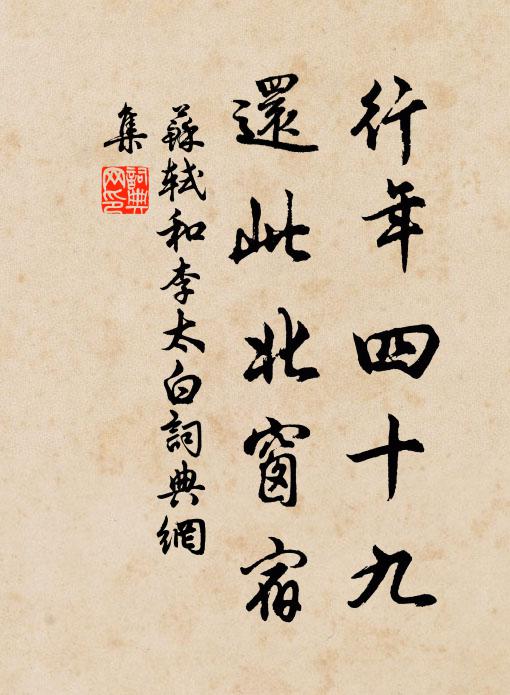 行年四十九
還此北窗宿
蘇軾和李太白詞典網
集
詞典網印